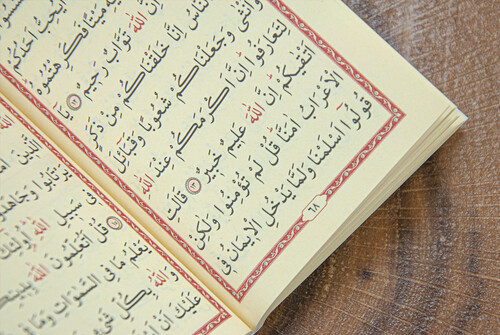 اَيُحِبُّ اَحَدُكُمْ
مَيْتًا فَكَرِهْتُمُوهُ
اِنَّ اللّٰهَ تَوَّابٌ رَحِيمٌ ﴿١٢﴾ يَا
النَّاسُ اِنَّا خَلَقْنَاكُمْ مِنْ ذَكَرٍ
وَاُنْثٰى وَجَعَلْنَاكُمْ شُعُوبًا وَقَبَائِلَ
لِتَعَارَفُوا اِنَّ اَكْرَمَكُمْ عِنْدَ اللّٰهِ
اَتْقٰيكُمْ اِنَّ اللّٰهَ عَلِيمٌ خَبِيرٌ ﴿١٣﴾ قَالَتِ
الْاَعْرَابُ اٰمَنَّا قُلْ لَمْ تُؤْمِنُوا وَلٰكِنْ
قُولُوا اَسْلَمْنَا وَلَمَّا يَدْخُلِ الْاِيمَانُ فِى
٦٨
الَّذِينَ
يَرْتَابُوا وَجَاهَدُوا
فِى سَبِيلِ اللّٰهِ اُولٰئِكَ
قُلْ اَتُعَلِّمُونَ اللّٰهَ
يَعْلَمُ مَا فِى السَّمٰوَاتِ وَمَا
وَاللّٰهُ بِكُلِّ شَيْءٍ
عَلَيْكَ اَنْ